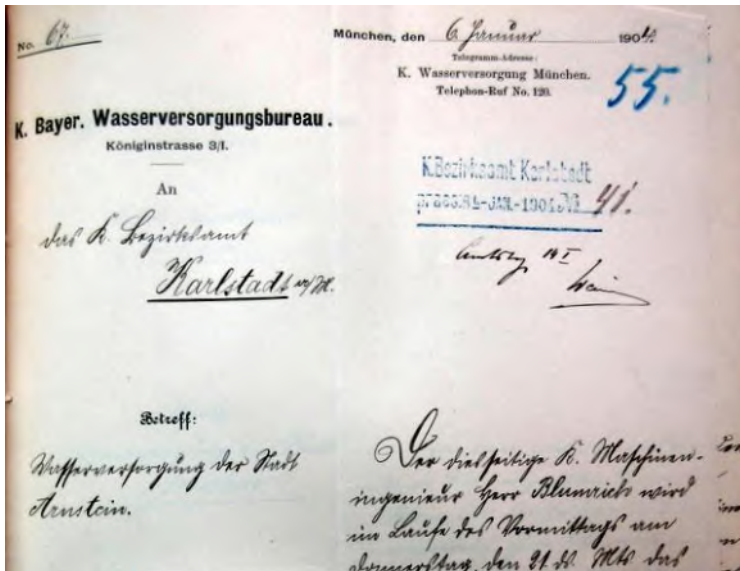 No. 67.
München, den 6. Januar 1904.
Telegramm-Adresse:
K. Wasserversorgung München.
Telephon-Ruf No. 120.
55.
K. Bayer. Wasserversorgungsbureau.
Königinstrasse 3/I.
An
das K. Bezirksamt
Karlstadt a/M.
K.Bezirksamt Karlstadt
praes. JAN. 1904 № 41.
14 I
Betreff:
Wasserversorgung der Stadt
Arnstein.
Der diesseitige K. Maschinen-
ingenieur Herr Blumrich wird
im Laufe des Vormittags am
Donnerstag, den 21. ds. Mts das